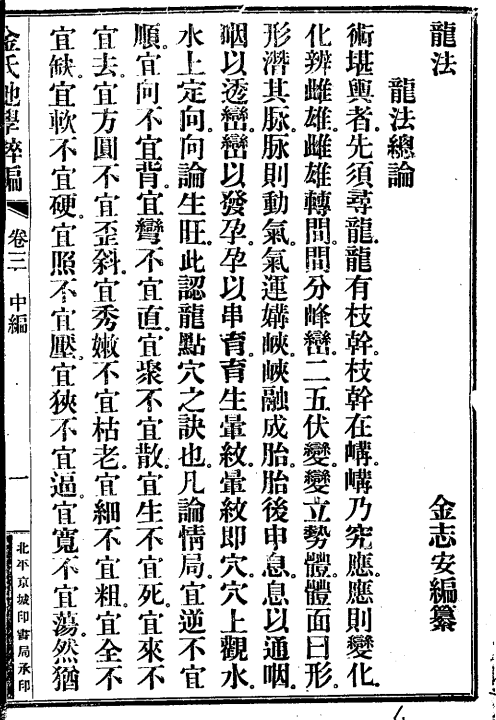 龍法
龍法總論
金志安編纂
術堪輿者。先須尋龍。龍有枝幹。枝幹在嶹。嶹乃究應。應則變化。變
化辨雌雄。雌雄轉間。間分峰巒。二五伏變。變立勢體。體面曰形。
形潛其脉。脉則動氣。氣運媾峽。峽融成胎。胎後申息。息以通咽。
咽以透巒。巒以發孕。孕以串育。育生暈紋。暈紋即穴。穴上觀水。
水上定向。向論生旺。此認龍點穴之訣也。凡論情局。宜逆不宜
順。宜向不宜背。宜彎不宜直。宜聚不宜散。宜生不宜死。宜來不
宜去。宜方圓不宜歪斜。宜秀嫩不宜枯老。宜細不宜粗。宜全不
宜缺。宜軟不宜硬。宜照不宜壓。宜狹不宜逼。宜寬不宜蕩。然猶
金氏地學粹編 卷三 中編 一 北平京城印書局承印